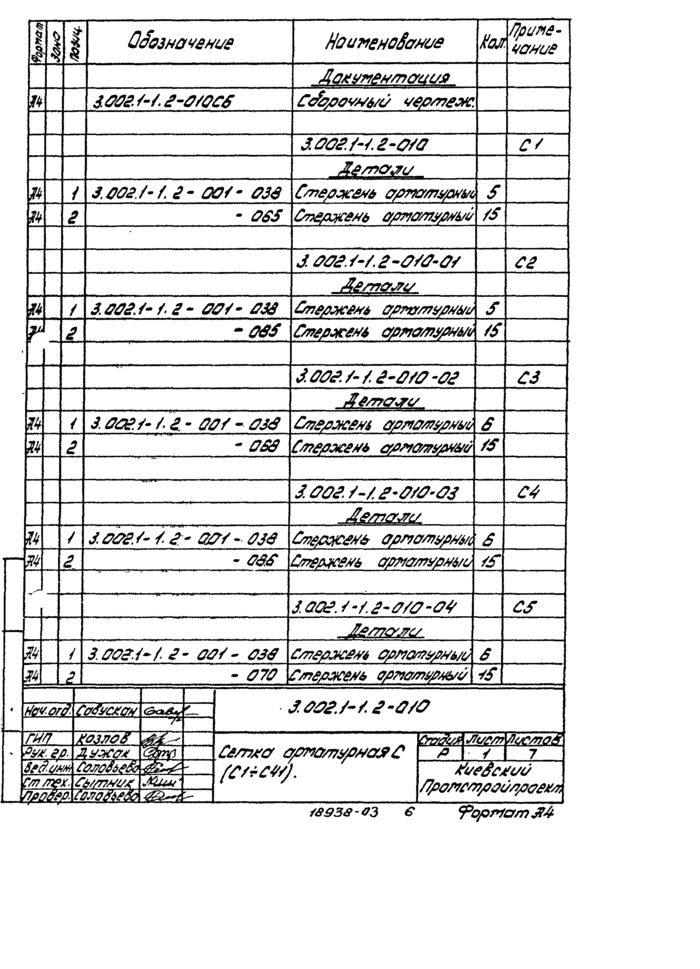 Формат Зона Позиц. Обозначение Наименование Кол. Приме-
чание
Документация
А4 3.002.1-1.2-010СБ Сборочный чертеж.
3.002.1-1.2-010 С1
Детали
А4 1 3.002.1-1.2-001-038 Стержень арматурный 5
А4 2 -065 Стержень арматурный 15
3.002.1-1.2-010-01 С2
Детали
А4 1 3.002.1-1.2-001-038 Стержень арматурный 5
А4 2 -085 Стержень арматурный 15
3.002.1-1.2-010-02 С3
Детали
А4 1 3.002.1-1.2-001-038 Стержень арматурный 6
А4 2 -068 Стержень арматурный 15
3.002.1-1.2-010-03 С4
Детали
А4 1 3.002.1-1.2-001-038 Стержень арматурный 6
А4 2 -086 Стержень арматурный 15
3.002.1-1.2-010-04 С5
Детали
А4 1 3.002.1-1.2-001-038 Стержень арматурный 6
А4 2 -070 Стержень арматурный 15
Нач.отд. Савускан
3.002.1-1.2-010
ГИП Козлов
Рук. гр. Дужак
Вед.инж. Соловьева
Ст.тех. Сытник
Провер. Соловьева
Сетка арматурная С
(С1÷С41).
Стадия Лист Листов
Р 1 7
Киевский
Промстройпроект
18938-03 6 Формат А4